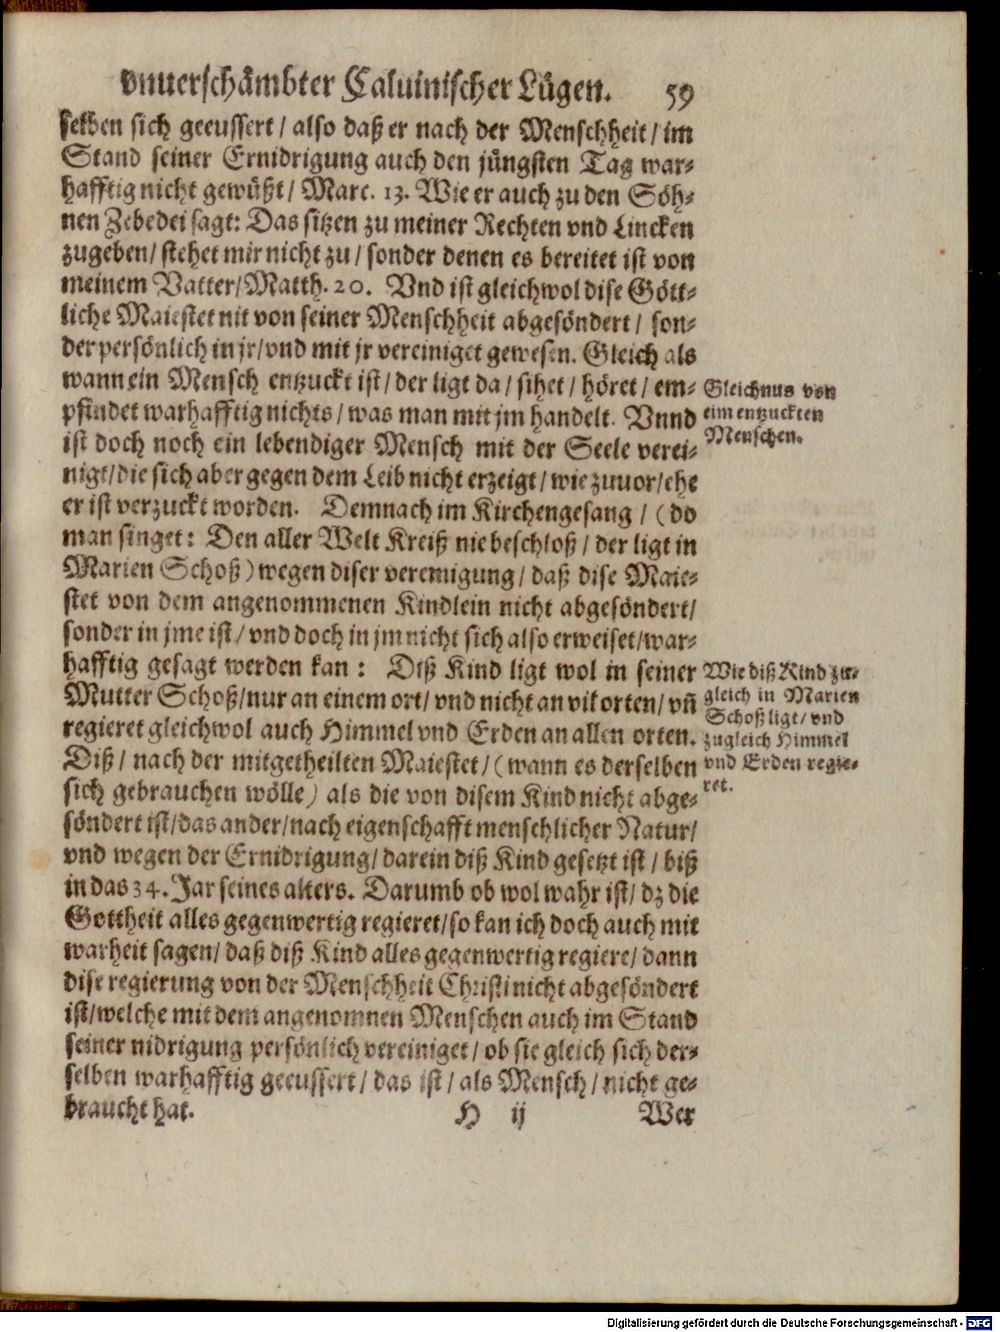 vnuerschämbter Caluinischer Lügen. 59
selben sich geeussert / also daß er nach der Menschheit / im
Stand seiner Ernidrigung auch den jüngsten Tag war-
hafftig nicht gewüßt / Marc. 13. Wie er auch zu den Söh-
nen Zebedei sagt: Das sitzen zu meiner Rechten vnd Lincken
zugeben / stehet mir nicht zu / sonder denen es bereitet ist von
meinem Vatter / Matth. 20. Vnd ist gleichwol dise Gött-
liche Maiestet nit von seiner Menschheit abgesöndert / son-
der persönlich in jr / vnd mit jr vereiniget gewesen. Gleich als
wann ein Mensch entzuckt ist / der ligt da / sihet / höret / em-
pfindet warhafftig nichts / was man mit jm handelt. Vnnd
ist doch noch ein lebendiger Mensch mit der Seele verei-
nigt / die sich aber gegen dem Leib nicht erzeigt / wie zuuor / ehe
er ist verzuckt worden. Demnach im Kirchengesang / (do
man singet: Den aller Welt Kreiß nie beschloß / der ligt in
Marien Schoß) wegen diser vereinigung / daß dise Maie-
stet von dem angenommenen Kindlein nicht abgesöndert /
sonder in jme ist / vnd doch in jm nicht sich also erweiset / war-
hafftig gesagt werden kan: Diß Kind ligt wol in seiner
Mutter Schoß / nur an einem ort / vnd nicht an vil orten / vñ
regieret gleichwol auch Himmel vnd Erden an allen orten.
Diß / nach der mitgetheilten Maiestet / (wann es derselben
sich gebrauchen wölle) als die von disem Kind nicht abge-
söndert ist / das ander / nach eigenschafft menschlicher Natur /
vnd wegen der Ernidrigung / darein diß Kind gesetzt ist / biß
in das 34. Jar seines alters. Darumb ob wol wahr ist / dz die
Gottheit alles gegenwertig regieret / so kan ich doch auch mit
warheit sagen / daß diß Kind alles gegenwertig regiere / dann
dise regierung von der Menschheit Christi nicht abgesöndert
ist / welche mit dem angenomnen Menschen auch im Stand
seiner nidrigung persönlich vereiniget / ob sie gleich sich der-
selben warhafftig geeussert / das ist / als Mensch / nicht ge-
braucht hat.
H ij Wer
Gleichnus von
eim entzuckten
Menschen.
Wie diß Kind zu-
gleich in Marien
Schoß ligt / vnd
zugleich Himmel
vnd Erden regie-
ret.
Digitalisierung gefördert durch die Deutsche Forschungsgemeinschaft - DFG